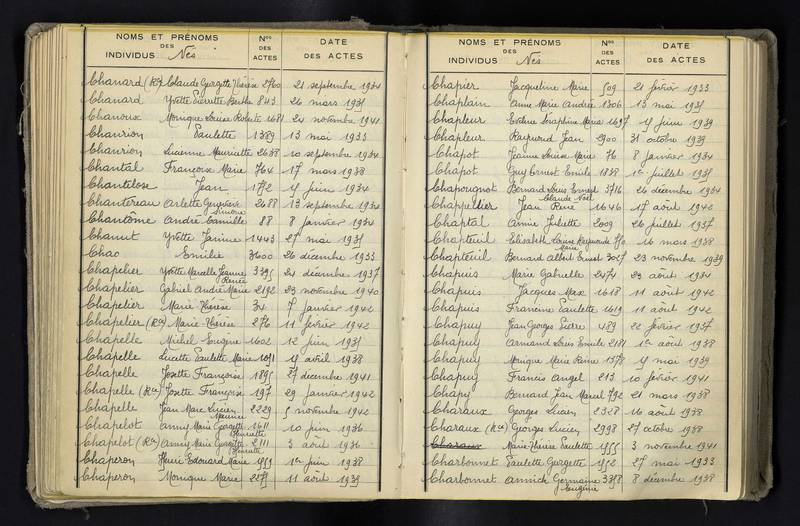 NOMS ET PRÉNOMS DES INDIVIDUS Nés Nos DES ACTES DATE DES ACTES
Chanard (Rct) Claude Georgette Thérèse 2760 21 septembre 1934
Chanard Yvette Pierrette Berthe 843 26 mars 1935
Chanoux Monique Louise Roberte 1681 24 novembre 1941
Chanrion Paulette 1389 13 mai 1933
Chanrion Lucienne Mauricette 2638 10 septembre 1934
Chantal Françoise Marie 764 17 mars 1938
Chantelose Jean 1792 4 juin 1934
Chantereau Arlette Guyenne Simone 2688 13 septembre 1934
Chantôme André Camille 88 8 janvier 1934
Chanut Yvette Janine 1443 27 mai 1935
Chao Emilie 3600 26 décembre 1933
Chapelier Yvette Marcelle Jeanne Renée 3395 24 décembre 1937
Chapelier Gabriel André Marie 2192 23 novembre 1940
Chapelier Marie Thérèse 34 7 janvier 1942
Chapelier (Rct) Marie Thérèse 276 11 février 1942
Chapelle Michel Eugène 1602 12 juin 1935
Chapelle Lucette Paulette Marie 1091 4 avril 1938
Chapelle Josette Françoise 1895 27 décembre 1941
Chapelle (Rct) Josette Françoise 197 29 janvier 1942
Chapelle Jean Marc Lucien Maurice 2229 5 novembre 1942
Chapelot Anny Marie Georgette Henriette 1611 10 juin 1936
Chapelot (Rct) Anny Marie Georgette Henriette 2111 3 août 1936
Chaperon Henri Edouard Marie 1559 1er juin 1938
Chaperon Monique Marie 2275 11 août 1939
NOMS ET PRÉNOMS DES INDIVIDUS Nés Nos DES ACTES DATE DES ACTES
Chapier Jacqueline Marie 509 21 février 1933
Chaplain Anne Marie Andrée 1306 13 mai 1935
Chapleur Evelyne Séraphine Marie 1697 4 juin 1939
Chapleur Raymond Jean 2900 31 octobre 1939
Chapot Jeanne Louise Marie 76 8 janvier 1934
Chapot Guy Ernest Emile 1838 1er juillet 1935
Chapougnot Bernard Louis Ernest 3716 26 décembre 1934
Chappellier Jean René Claude Noël 1646 17 août 1942
Chaptal Annie Juliette 2009 26 juillet 1937
Chapteuil Elisabeth Louise Raymonde Marie 16 mars 1938
Chapteuil Bernard Albert Ernest 3027 23 novembre 1939
Chapuis Marie Gabrielle 2471 22 août 1934
Chapuis Jacques Max 1618 11 août 1942
Chapuis Francine Paulette 1619 11 août 1942
Chapuy Jean Georges Pierre 489 22 février 1937
Chapuy Armand Louis Emile 2181 1er août 1938
Chapuy Monique Marie Reine 1378 4 mai 1939
Chapuy Francis Angel 213 10 février 1941
Chapy Bernard Jean Marcel 792 21 mars 1938
Charaux Georges Lucien 2328 16 août 1938
Charaux (Rct) Georges Lucien 2998 27 octobre 1938
Charaux Marie-Thérèse Paulette 1555 3 novembre 1941
Charbonnet Paulette Georgette 1552 27 mai 1933
Charbonnet Annick Germaine Eugénie 3358 8 décembre 1938